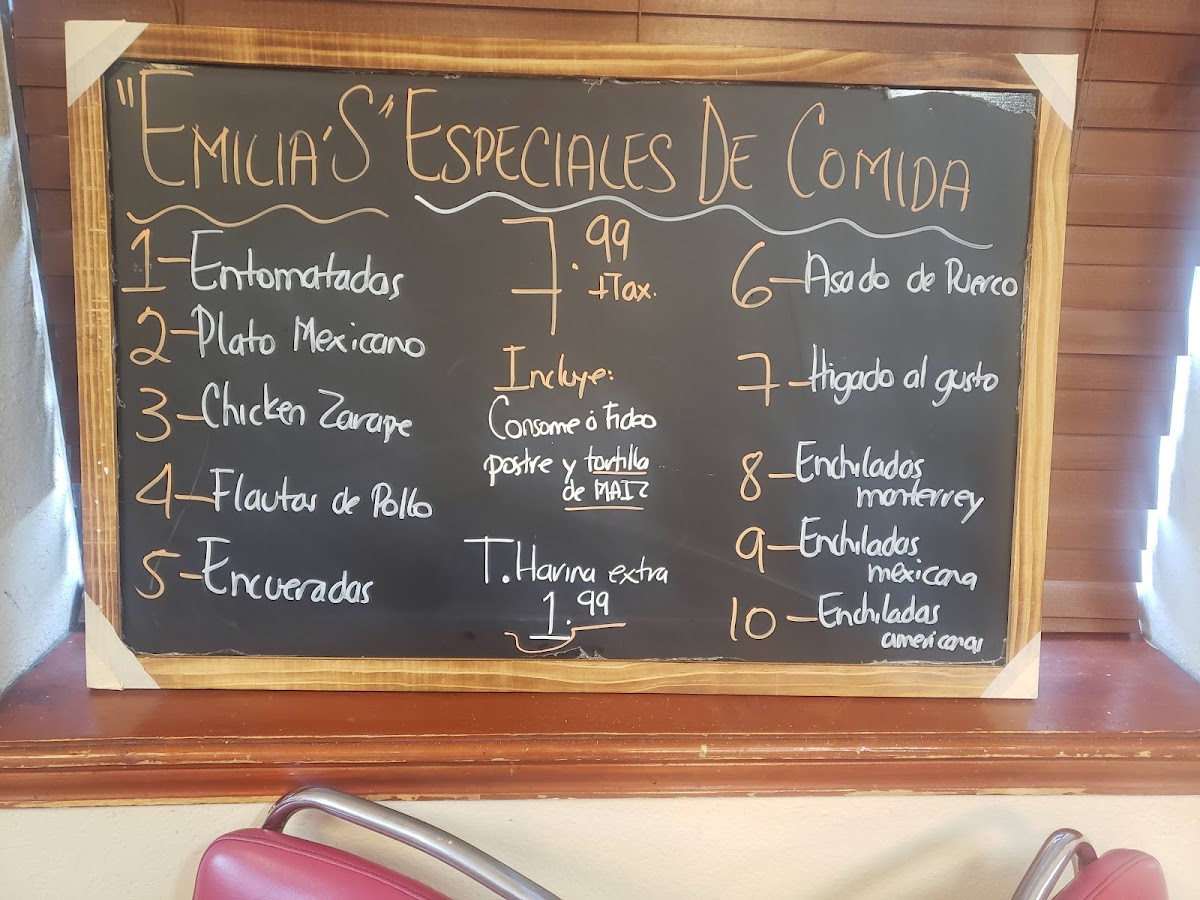 "EMILIA'S" ESPECIALES DE COMIDA
1-Entomatadas
2-Plato Mexicano
3-Chicken Zarape
4-Flautas de Pollo
5-Encueradas
7.99
+Tax.
Incluye:
Consome ó Fideo
postre y tortilla
de MAIZ
T. Harina extra
1.99
6-Asado de Puerco
7-Higado al gusto
8-Enchiladas
monterrey
9-Enchiladas
mexicana
10-Enchiladas
americanas